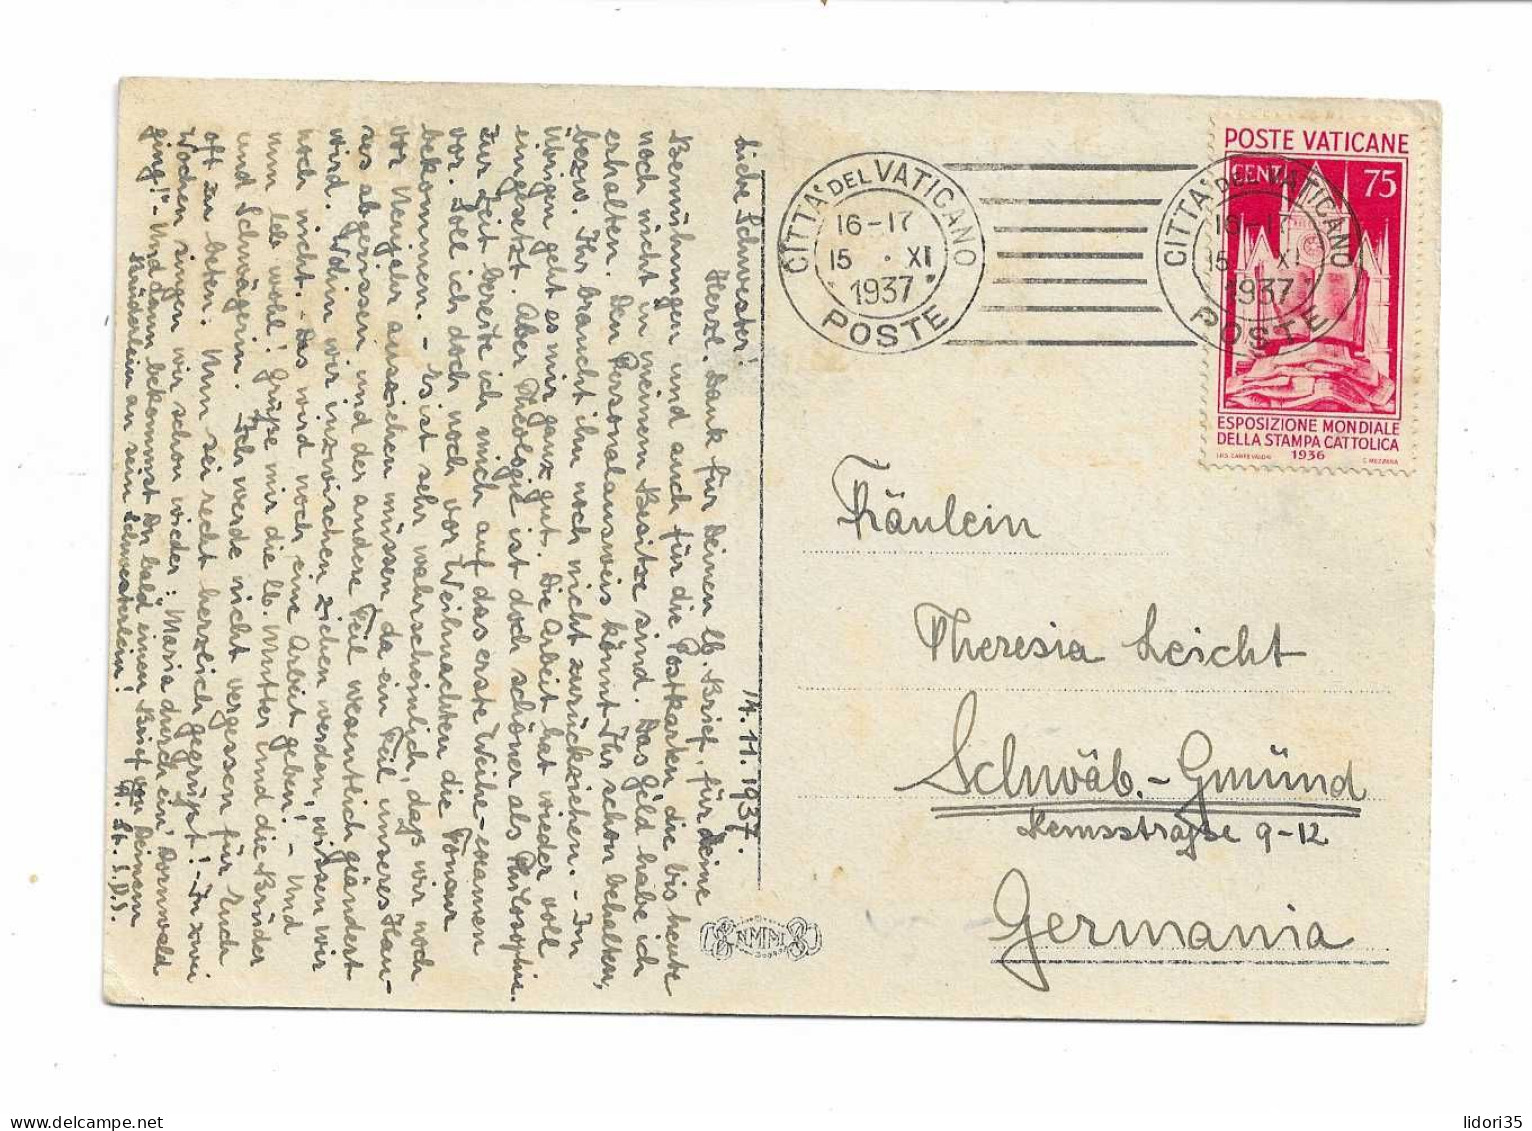 14. 11. 1937.
Liebe Schwester!
Herzl. Dank für Deinen lb. Brief, für Deine
Bemühungen und auch für die Postkarten, die bis heute
noch nicht in meinem Besitze sind. Das Geld habe ich
erhalten. Den Personalausweis könnt Ihr schon behalten,
bezw. Ihr braucht ihn noch nicht zurückziehen. - Im
übrigen geht es mir ganz gut. Die Arbeit hat wieder voll
eingesetzt. Aber Theologie ist doch schöner als Philosophie.
Zur Zeit bereite ich mich auf das erste Weihe-examen
vor. Soll ich doch noch vor Weihnachten die Tonsur
bekommen. - Es ist sehr wahrscheinlich, daß wir noch
vor Neujahr ausziehen müssen, da ein Teil unseres Hau-
ses abgerissen und der andere Teil wesentlich geändert
wird. Wohin wir inzwischen ziehen werden, wissen wir
noch nicht. - Das wird noch eine Arbeit geben! - Und
nun leb wohl! Grüße mir die lb. Mutter und die Brüder
und Schwägerin. Ich werde nicht vergessen für Euch
oft zu beten. Nun sei recht herzlich gegrüßt! - In zwei
Wochen singen wir schon wieder: Maria durch ein' Dornwald
ging!" - Und dann bekommst Du bald einen Brief von Deinem
Brüderlein an sein Schwesterlein!
St. S.D.S.
CITTA' DEL VATICANO
16-17
15 . XI
1937
POSTE
CITTA' DEL VATICANO
16-17
15 XI
1937
POSTE
POSTE VATICANE
CENT 75
ESPOSIZIONE MONDIALE
DELLA STAMPA CATTOLICA
1936
C. MEZZANA
Fräulein
Theresia Leicht
Schwäb.-Gmünd
Remsstraße 9-12
Germania
lidori35